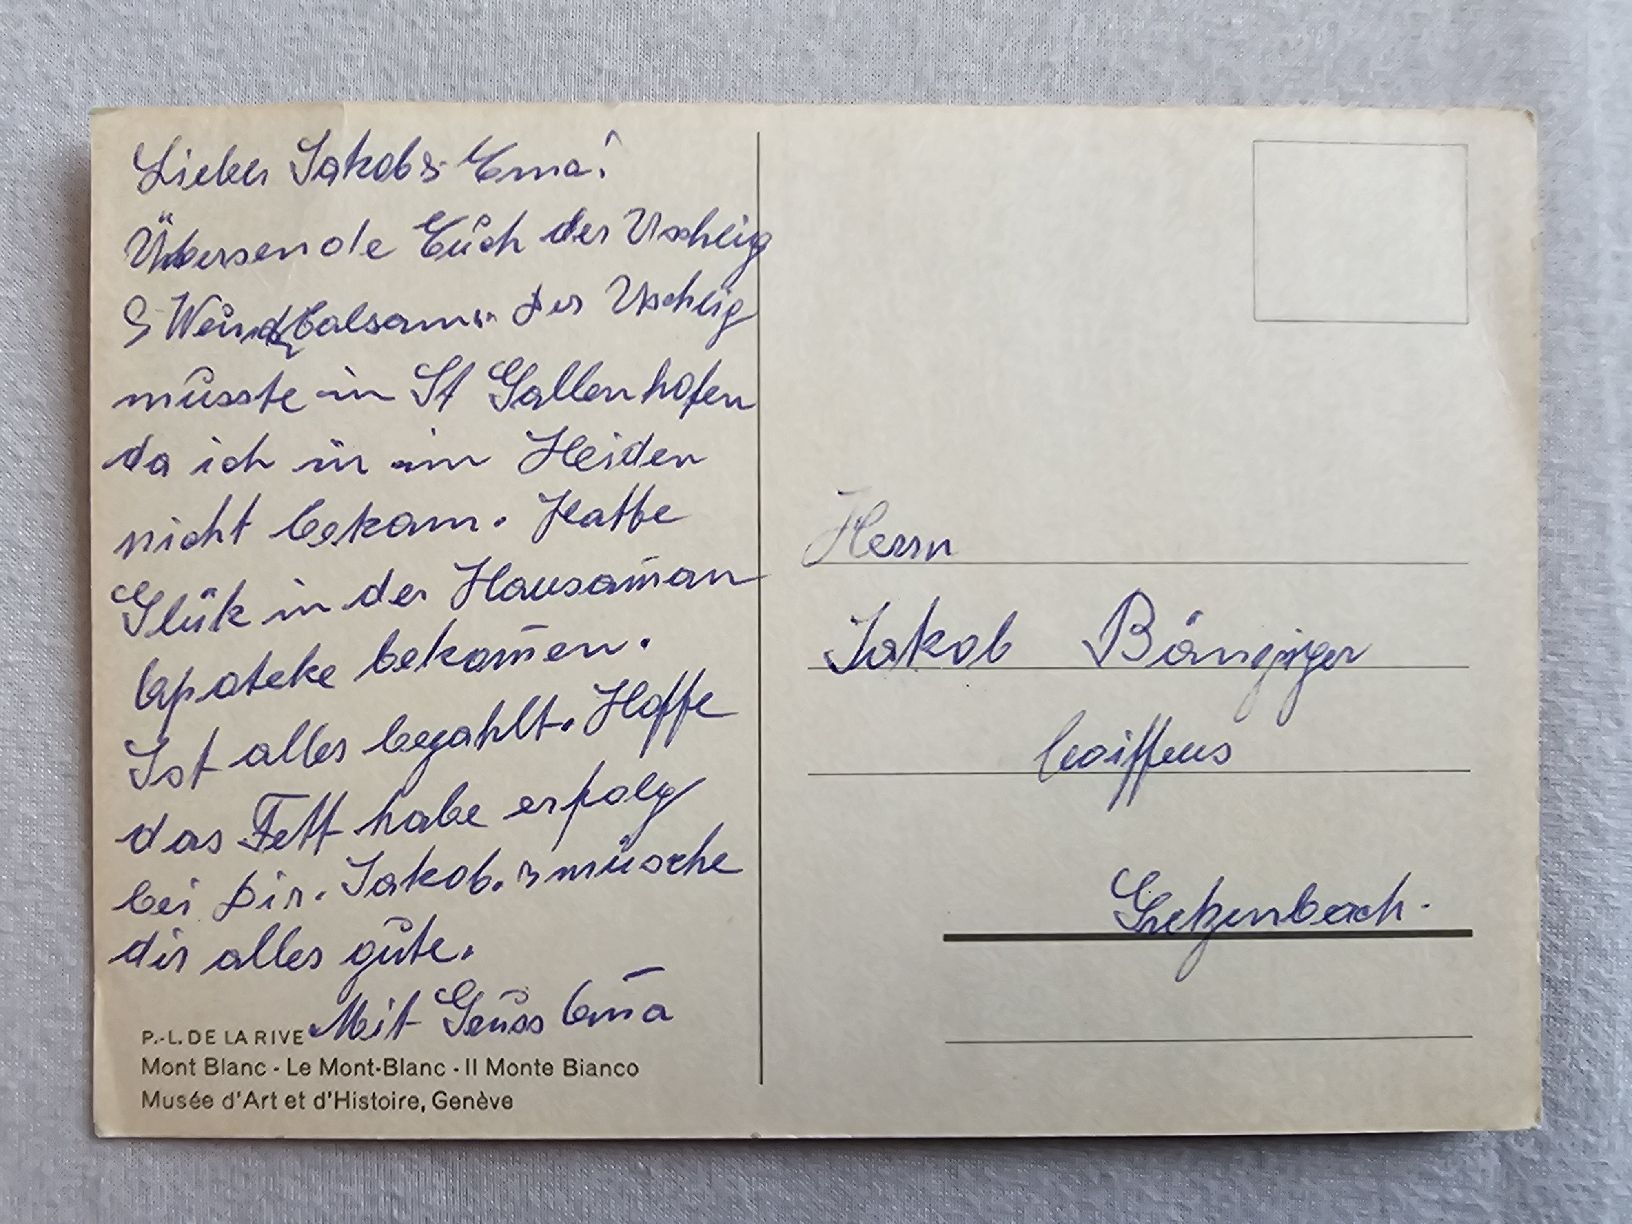 Lieber Jakob & Ema!
Übersende Euch der Uschlig
& Wundbalsam. Der Uschlig
müsste in St Gallen hofen
da ich in im Heiden
nicht bekam. Hatte
Glük in der Hausam̄an
Apoteke bekom̄en.
Ist alles bezahlt. Hoffe
das Fett habe erfolg
bei Dir. Jakob.
dir alles gute.
Mit Gruss Em̄a
P.-L. DE LA RIVE
Mont Blanc - Le Mont-Blanc - Il Monte Bianco
Musée d'Art et d'Histoire, Genève
Herrn
Jakob Bänziger
Coiffeur
Gretzenbach.